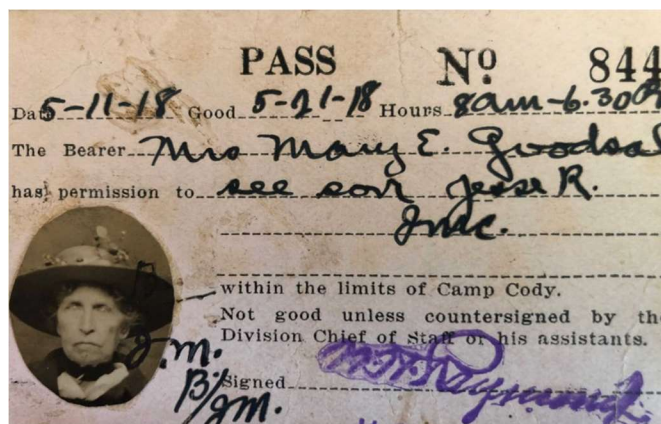 PASS No 844
Date 5-11-18 Good 5-21-18 Hours 8am-6.30P
The Bearer Mrs Mary E. Goodsa
has permission to see son Jesse R.
JMC.
within the limits of Camp Cody.
Not good unless countersigned by th
Division Chief of Staff or his assistants.
J.M.
B/JM.
Signed